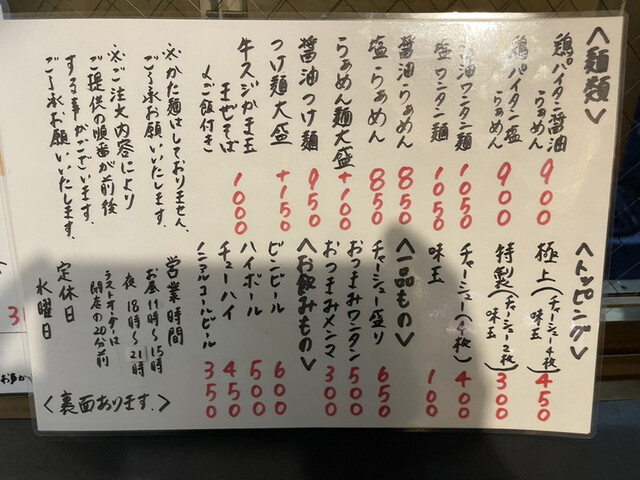 <麺類>
鶏パイタン醤油らぁめん 900
鶏パイタン塩らぁめん 900
醤油ワンタン麺 1050
塩ワンタン麺 1050
醤油らぁめん 850
塩らぁめん 850
らぁめん麺大盛 +100
醤油つけ麺 950
つけ麺大盛 +150
牛スジかま玉
まぜそば
(ご飯付き 1000
※かた麺はしておりません、
ご了承お願いいたします。
※ご注文内容により
ご提供の順番が前後
する事がございます。
ご了承お願いいたします。
<トッピング>
極上(チャーシュー4枚 味玉) 450
特製(チャーシュー2枚 味玉) 300
チャーシュー(4枚) 400
味玉 100
<一品もの>
チャーシュー盛り 650
おつまみワンタン 500
おつまみメンマ 300
<お飲みもの>
ビンビール 600
ハイボール 500
チューハイ 450
ノンアルコールビール 350
営業時間
お昼11時〜15時
夜 18時〜21時
ラストオーダーは
閉店の20分前
定休日
水曜日
<裏面あります。>